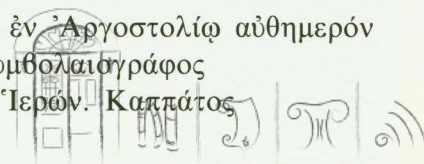 ἐν Ἀργοστολίῳ αὐθημερόν
υμβολαιογράφος
Ἱερών. Καππάτος